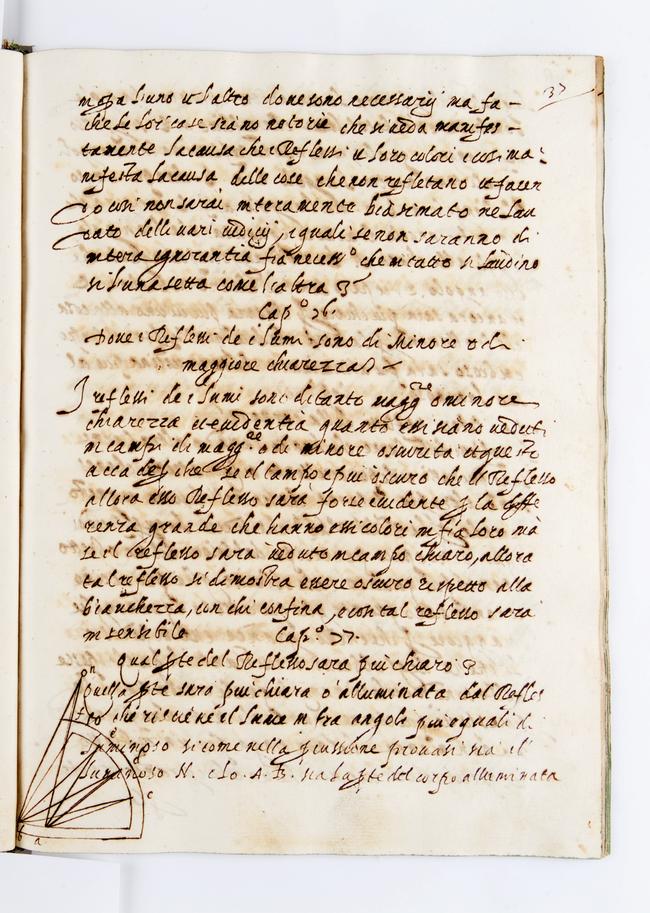 37
mosa l'uno et l'altro dove sono necessarij ma fa -
che le lor case siano notorie che si veda manifes -
tamente la causa che i Reflessi et loro colori e così ma:
nifesta la causa delle cose che non refletano et facen
do così non sarai interamente biasimato ne lau
dato delli vari iudicij, i quali se non saranno di
intera ignorantia fia necess.o che in tutto si laudino
si l'una setta come l'altra
Cap.o 76.
Dove i Reflessi de i lumi sono di Minore o di
maggiore chiarezza
I reflessi de i lumi sono di tanto magg.re o minore
chiarezza et evidentia quanto essi siano veduti
in campi di magg.re o di minore oscurita et questo
accade che se el campo e piu oscuro che il Reflesso
allora esso Reflesso sara forte evidente p la diffe
rentia grande che hanno essi colori in fia loro ma
se il reflesso sara veduto in campo chiaro, allora
tal reflesso si dimostra essere oscuro rispetto alla
bianchezza, con chi confina, e così tal reflesso sara
insensibile Cap.o 77.
Qual pte del Reflesso sara piu chiaro
quella pte sara piu chiara o alluminata dal Refles
so che riscieve il lume in fra angoli piu eguali di
luminoso si come nella p sia il
luminoso N. e lo. A. B. sia la pte del corpo alluminata
n
c
b a